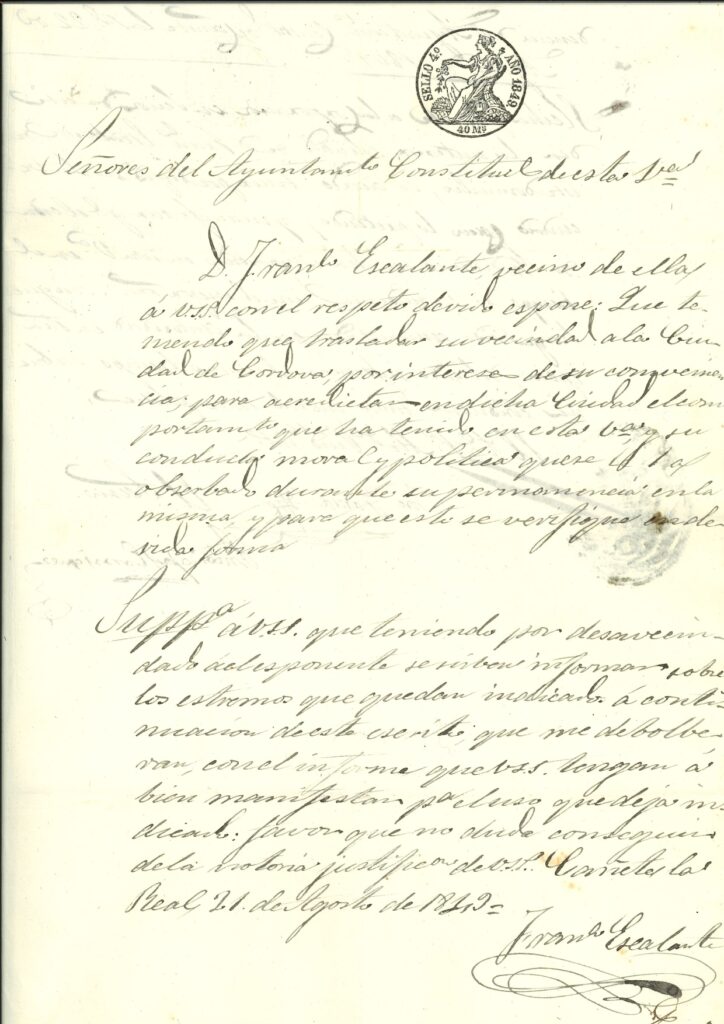 SELLO 4º AÑO 1849.
40 Mˢ
Señores del Ayuntamto Constitucl de esta Va
D. Franco Escalante, vecino de ella,
á V.SS. con el respeto devido espone: Que te-
niendo que trasladar su vecindad a la Ciu-
dad de Cordova, por interese de su convenien-
cia, para acredictar en dicha Ciudad el com
portamto que ha tenido en esta Va y su
conducta moral y politica que se ha
observado durante su permanencia en la
misma, y para que esto se verifique en de-
vida forma
Suppca á V.SS. que teniendo por desavecin-
dado al esponente se sirban informar sobre
los estremos que quedan indicados á conti-
nuacion de este escrito, que me debolbe-
ran, con el informe que V.SS. tengan á
bien manifestar pa el uso que deja in-
dicado: favor que no duda conseguir
de la notoria justificon de V.SS. Cañete la
Real, 21. de Agosto de 1849=
Franco Escalante